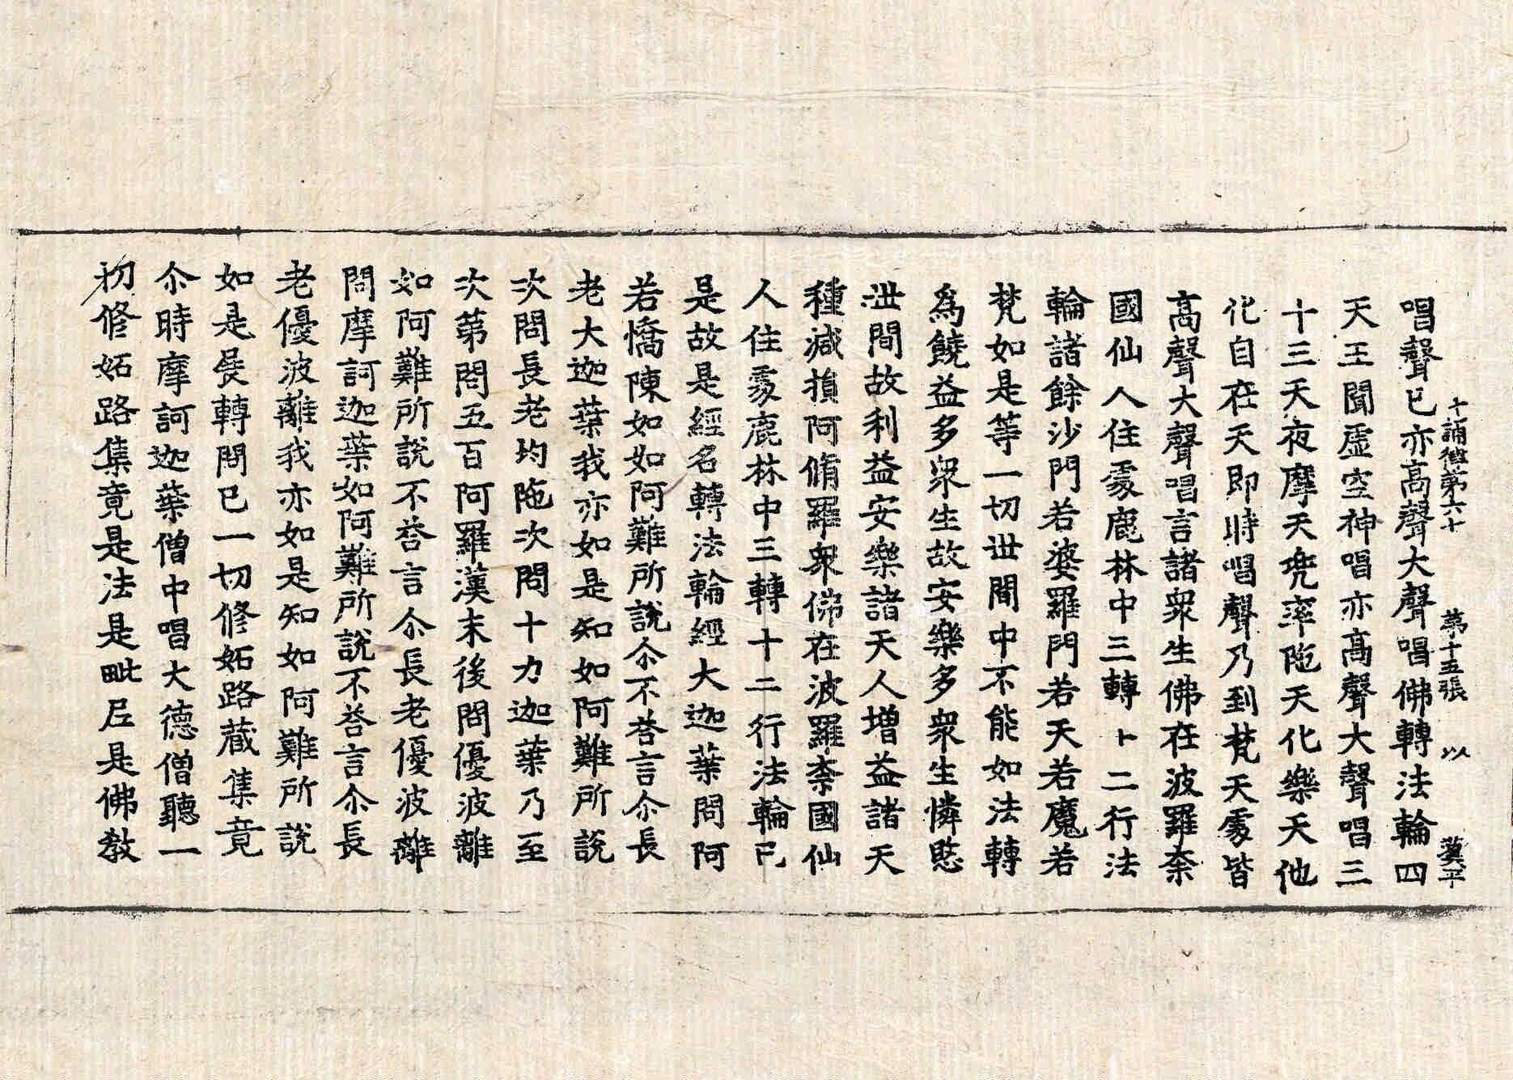 十誦律第六十　第十五張　以　冀平
唱聲已亦高聲大聲唱佛轉法輪四
天王聞虛空神唱亦高聲大聲唱三
十三天夜摩天兜率陁天化樂天他
化自在天即時唱聲乃到梵天處皆
高聲大聲唱言諸衆生佛在波羅柰
國仙人住處鹿林中三轉十二行法
輪諸餘沙門若婆羅門若天若魔若
梵如是等一切世間中不能如法轉
爲饒益多衆生故安樂多衆生憐愍
世間故利益安樂諸天人增益諸天
種減損阿脩羅衆佛在波羅柰國仙
人住處鹿林中三轉十二行法輪已
是故是經名轉法輪經大迦葉問阿
若憍陳如如阿難所說尒不荅言尒長
老大迦葉我亦如是知如阿難所說
次問長老均陁次問十力迦葉乃至
次第問五百阿羅漢末後問優波離
如阿難所說不荅言尒長老優波離
問摩訶迦葉如阿難所說不荅言尒長
老優波離我亦如是知如阿難所說
如是展轉問已一切修妬路藏集竟
尒時摩訶迦葉僧中唱大德僧聽一
切修妬路集竟是法是毗尼是佛教